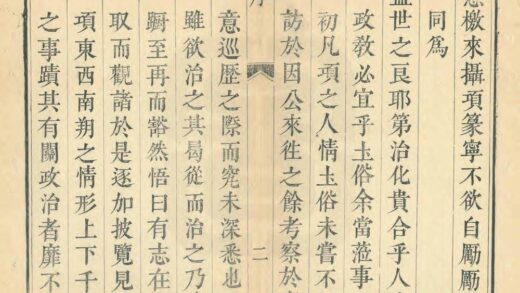 檄來攝項篆寧不欲自勵勵
同爲
世之良耶第治化貴合乎人
政敎必宜乎圡俗余當蒞事
初凡項之人情圡俗未嘗不
訪於因公來徃之餘考察於
二
意巡歷之際而究未深悉也
雖欲治之其曷從而治之乃
蹰至再而豁然悟曰有志在
取而觀諸於是逐加披覽見
項東西南朔之情形上下千
之事蹟其有關政治者靡不